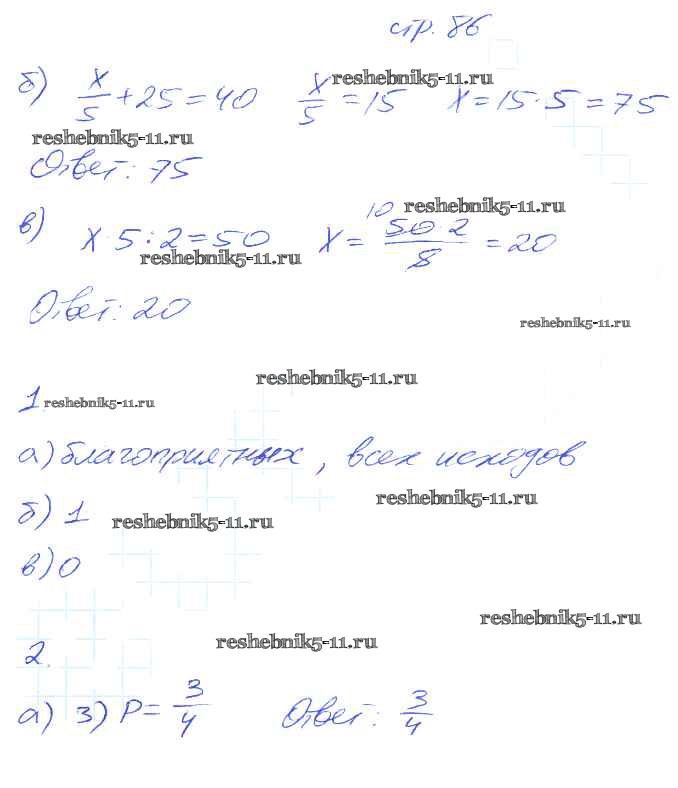 стр. 86
б) x/5 + 25 = 40 x/5 = 15 x = 15 · 5 = 75
reshebnik5-11.ru
reshebnik5-11.ru
Ответ: 75
reshebnik5-11.ru
в) x · 5 : 2 = 50 x = 10 50 · 2/8 = 20
reshebnik5-11.ru
Ответ: 20
reshebnik5-11.ru
reshebnik5-11.ru
1. reshebnik5-11.ru
а) благоприятных, всех исходов
reshebnik5-11.ru
б) 1 reshebnik5-11.ru
в) 0
reshebnik5-11.ru
2. reshebnik5-11.ru
а) 3) P = 3/4 Ответ: 3/4